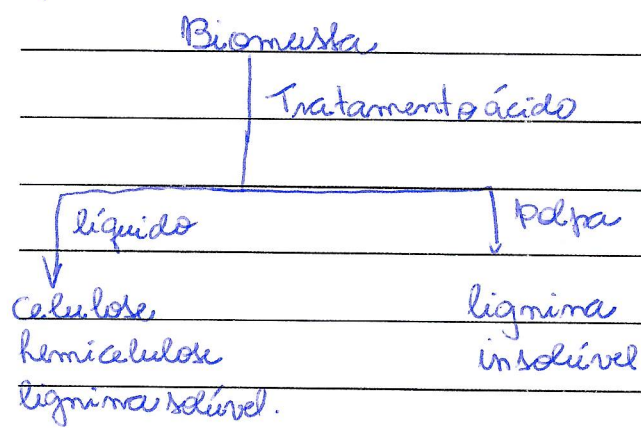 Biomassa
Tratamento ácido
líquido
polpa
celulose
hemicelulose
lignina solúvel.
lignina
insolúvel